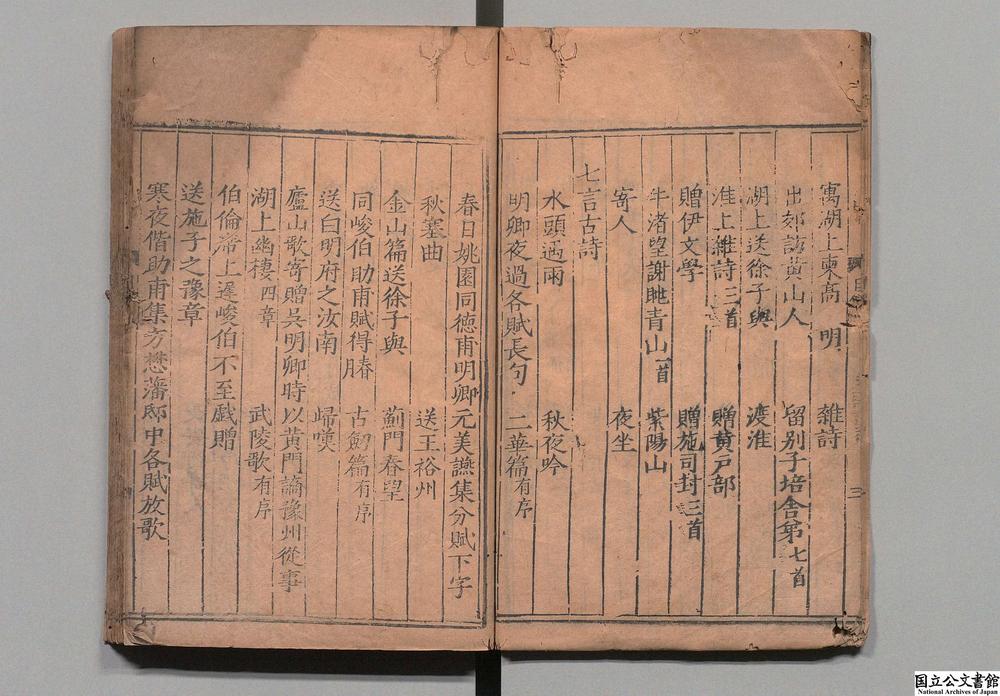 寓湖上柬髙 明 雜詩
出郊訪黄山人 留别子培舍弟七首
湖上送徐子與 渡淮
淮上雜詩三首 贈黄戸部
贈伊文學 贈施司封三首
牛渚望謝眺青山一首 紫陽山
寄人 夜坐
七言古詩
水頭遇雨 秋夜吟
明卿夜過各賦長句 二華篇有序
春日姚園同徳甫明卿元美讌集分賦下字
秋塞曲 送王裕州
金山篇送徐子與 薊門春望
同峻伯助甫賦得膓 古劒篇有序
送白明府之汝南 歸嘆
廬山歌寄贈吳明卿時以黄門謫豫州從事
湖上幽棲四章 武陵歌有序
伯倫席上遲峻伯不至戯贈
送施子之豫章
寒夜偕助甫集方懋藩邸中各賦放歌
三
国立公文書館
National Archives of Japan